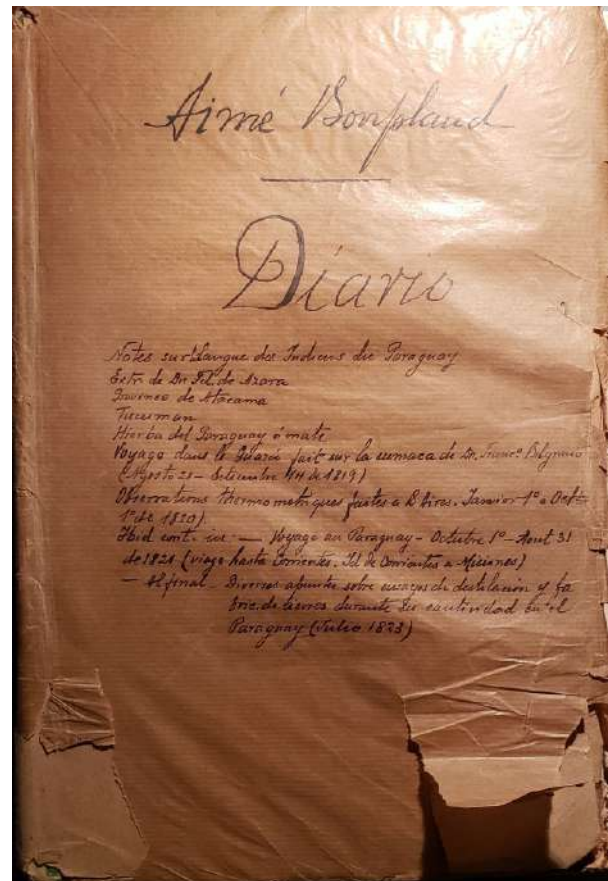 Aimé Bonpland
Diario
Notes sur langue des Indiens du Paraguay
Extr. de Dn Fel. de Azara
Province de Atacama
Tucuman
Hierba del Paraguay ó mate
Voyage dans le Parana fait sur la sumaca de Dn. Franco. Belgrano
(Agosto 21 - Setiembre de 1819)
Observations thermometriques faites a B Aires. Janvier 1º a Octe
1º de 1820)
Ibid cont. ice — Voyage au Paraguay - Octubre 1º - Aout 31
de 1821 (viage hasta Corrientes. Id de Corrientes a Misiones)
— Al final - Diversos apuntes sobre ensayos de destilacion y fa
bric. de licores durante su cautividad en el
Paraguay (Julio 1823)